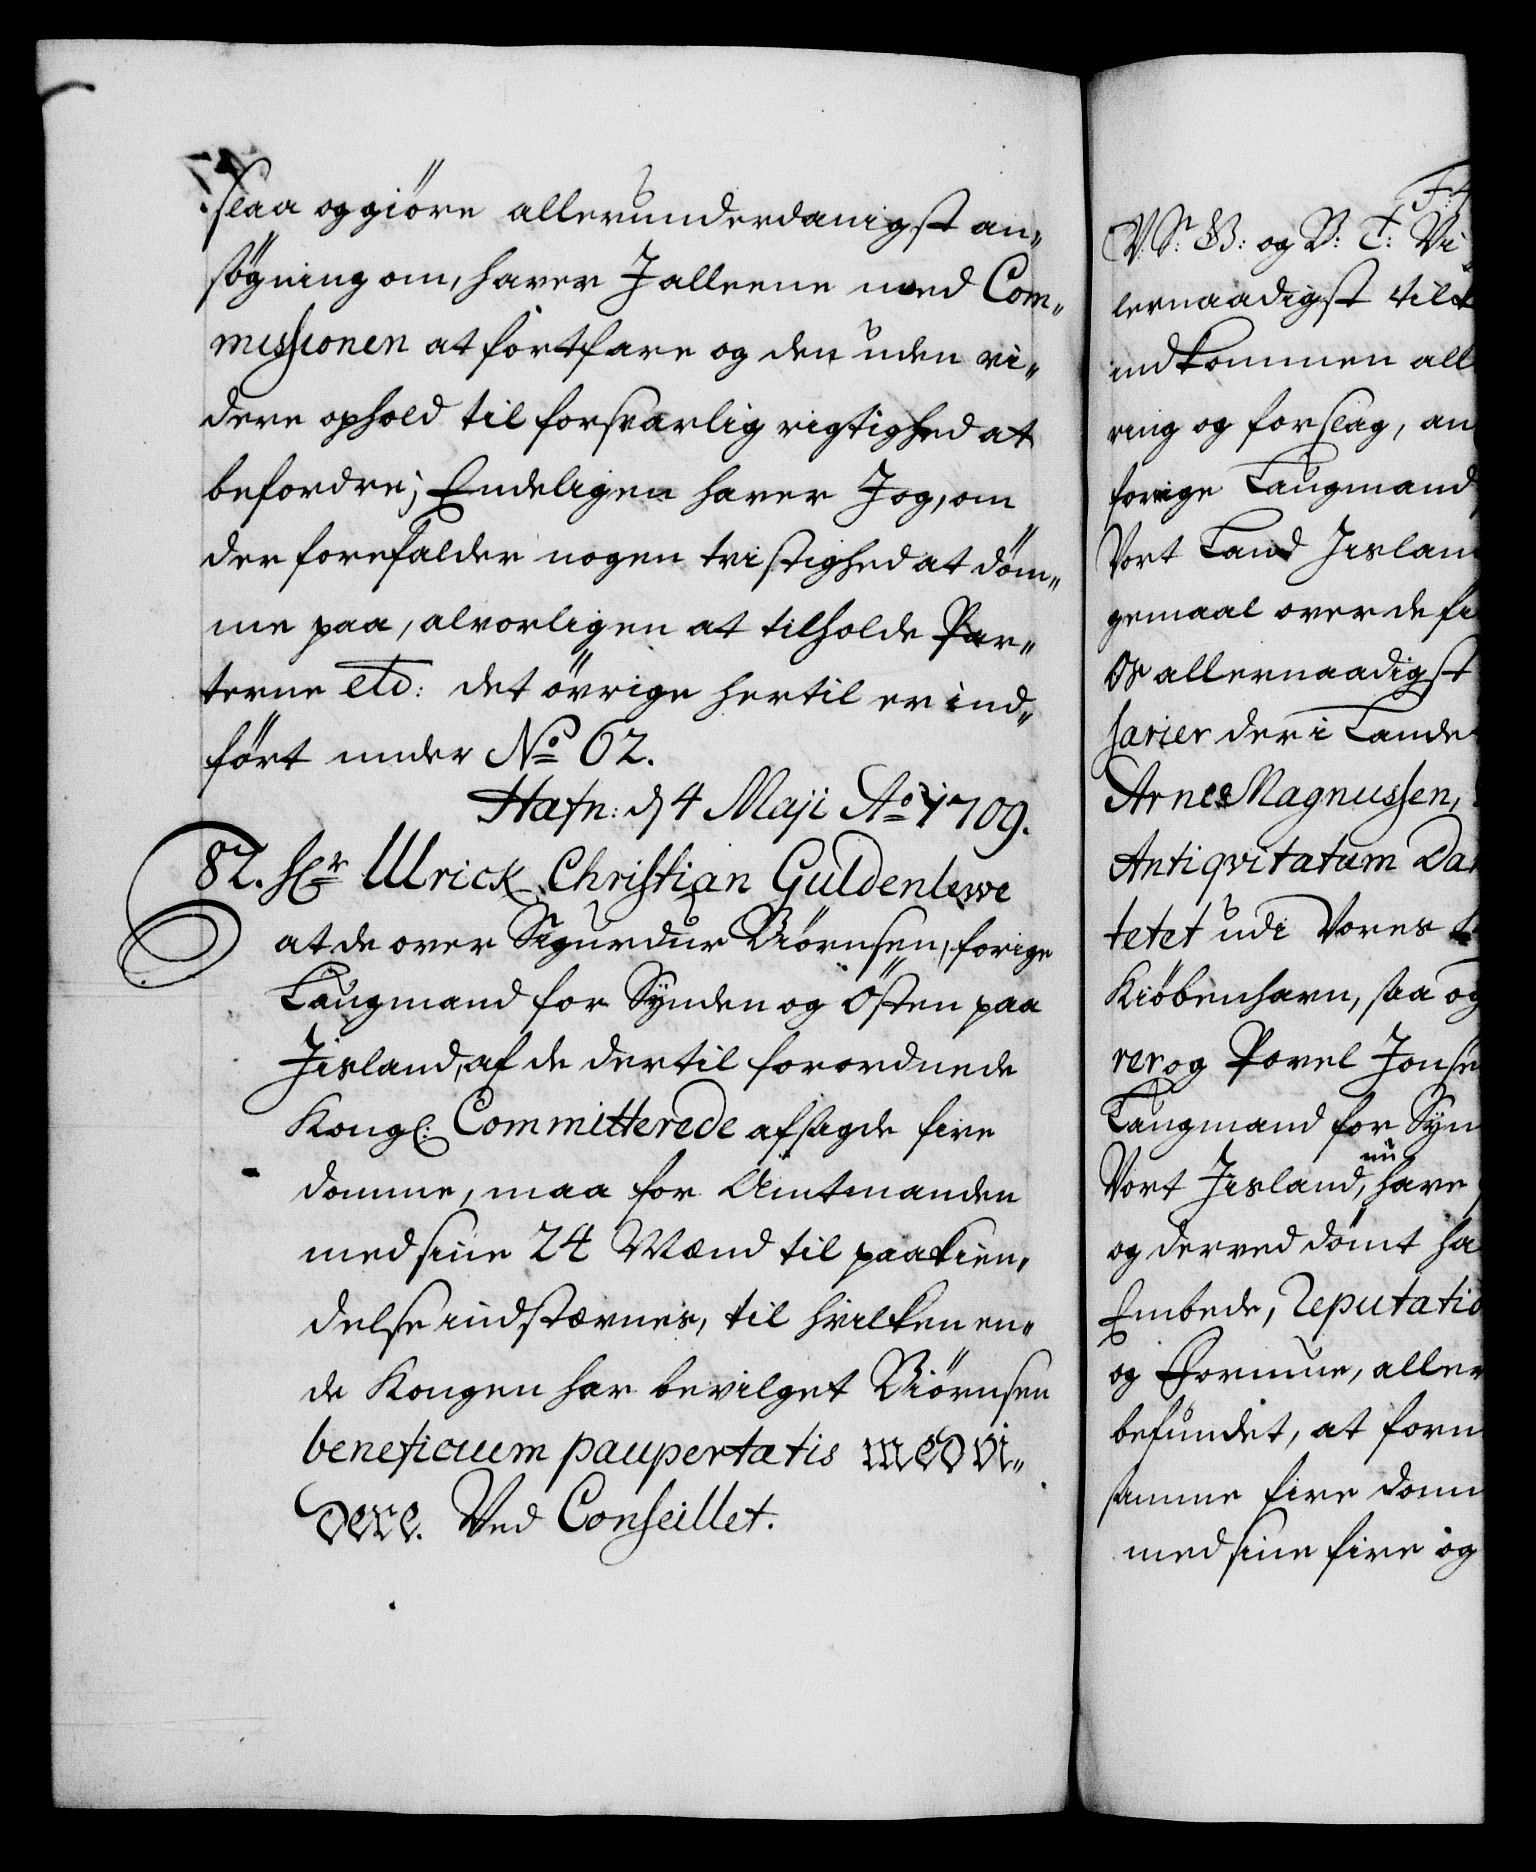 slaa og giöre allerunderdanigst an„
søgning om, haver I alleene med Com„
missionen at fortfare og den uden vi„
dere ophold til forsvarlig rigtighed at
befordre; Endeligen haver I og, om
der forefalder nogen tvistighed at döm„
me paa, alvorligen at tilholde Par„
terne etc: det övrige hertil er ind„
fört under No 62.
Hafn: d 4 Maji Ao 1709.
82. Hr Ulrick Christian Guldenlewe
at de over Sigurdur Biörnsen, forige
Laugmand for Synden og Östen paa
Iisland, af de dertil forordnede
Kongl: Committerede afsagde fire
domme, maa for Amtmanden
med sine 24 Mænd til paakien„
delse indstævnes, til hvilken en„
de Kongen har bevilget Biörnsen
beneficium paupertatis med vi„
dere. Ved Conseillet.
V. S: G: og V: T: Vi
lernaadigst till
indkommen all
ring og forslag, an
forige Laugmand
Vort Land Iislan
gemaal over de fi
Os allernaadigst
sarier der i Lande
Arne Magnussen,
Antiqvitatum Da
tetet udi Vores
Kiöbenhavn, saa og
rer og Povel Jonse
Laugmand for Syn
Vort Iisland, nu have
og derved dömt ha
Embede, Reputatio
og Formue, aller
befundet, at forn
samme fire dom
med sine fire og